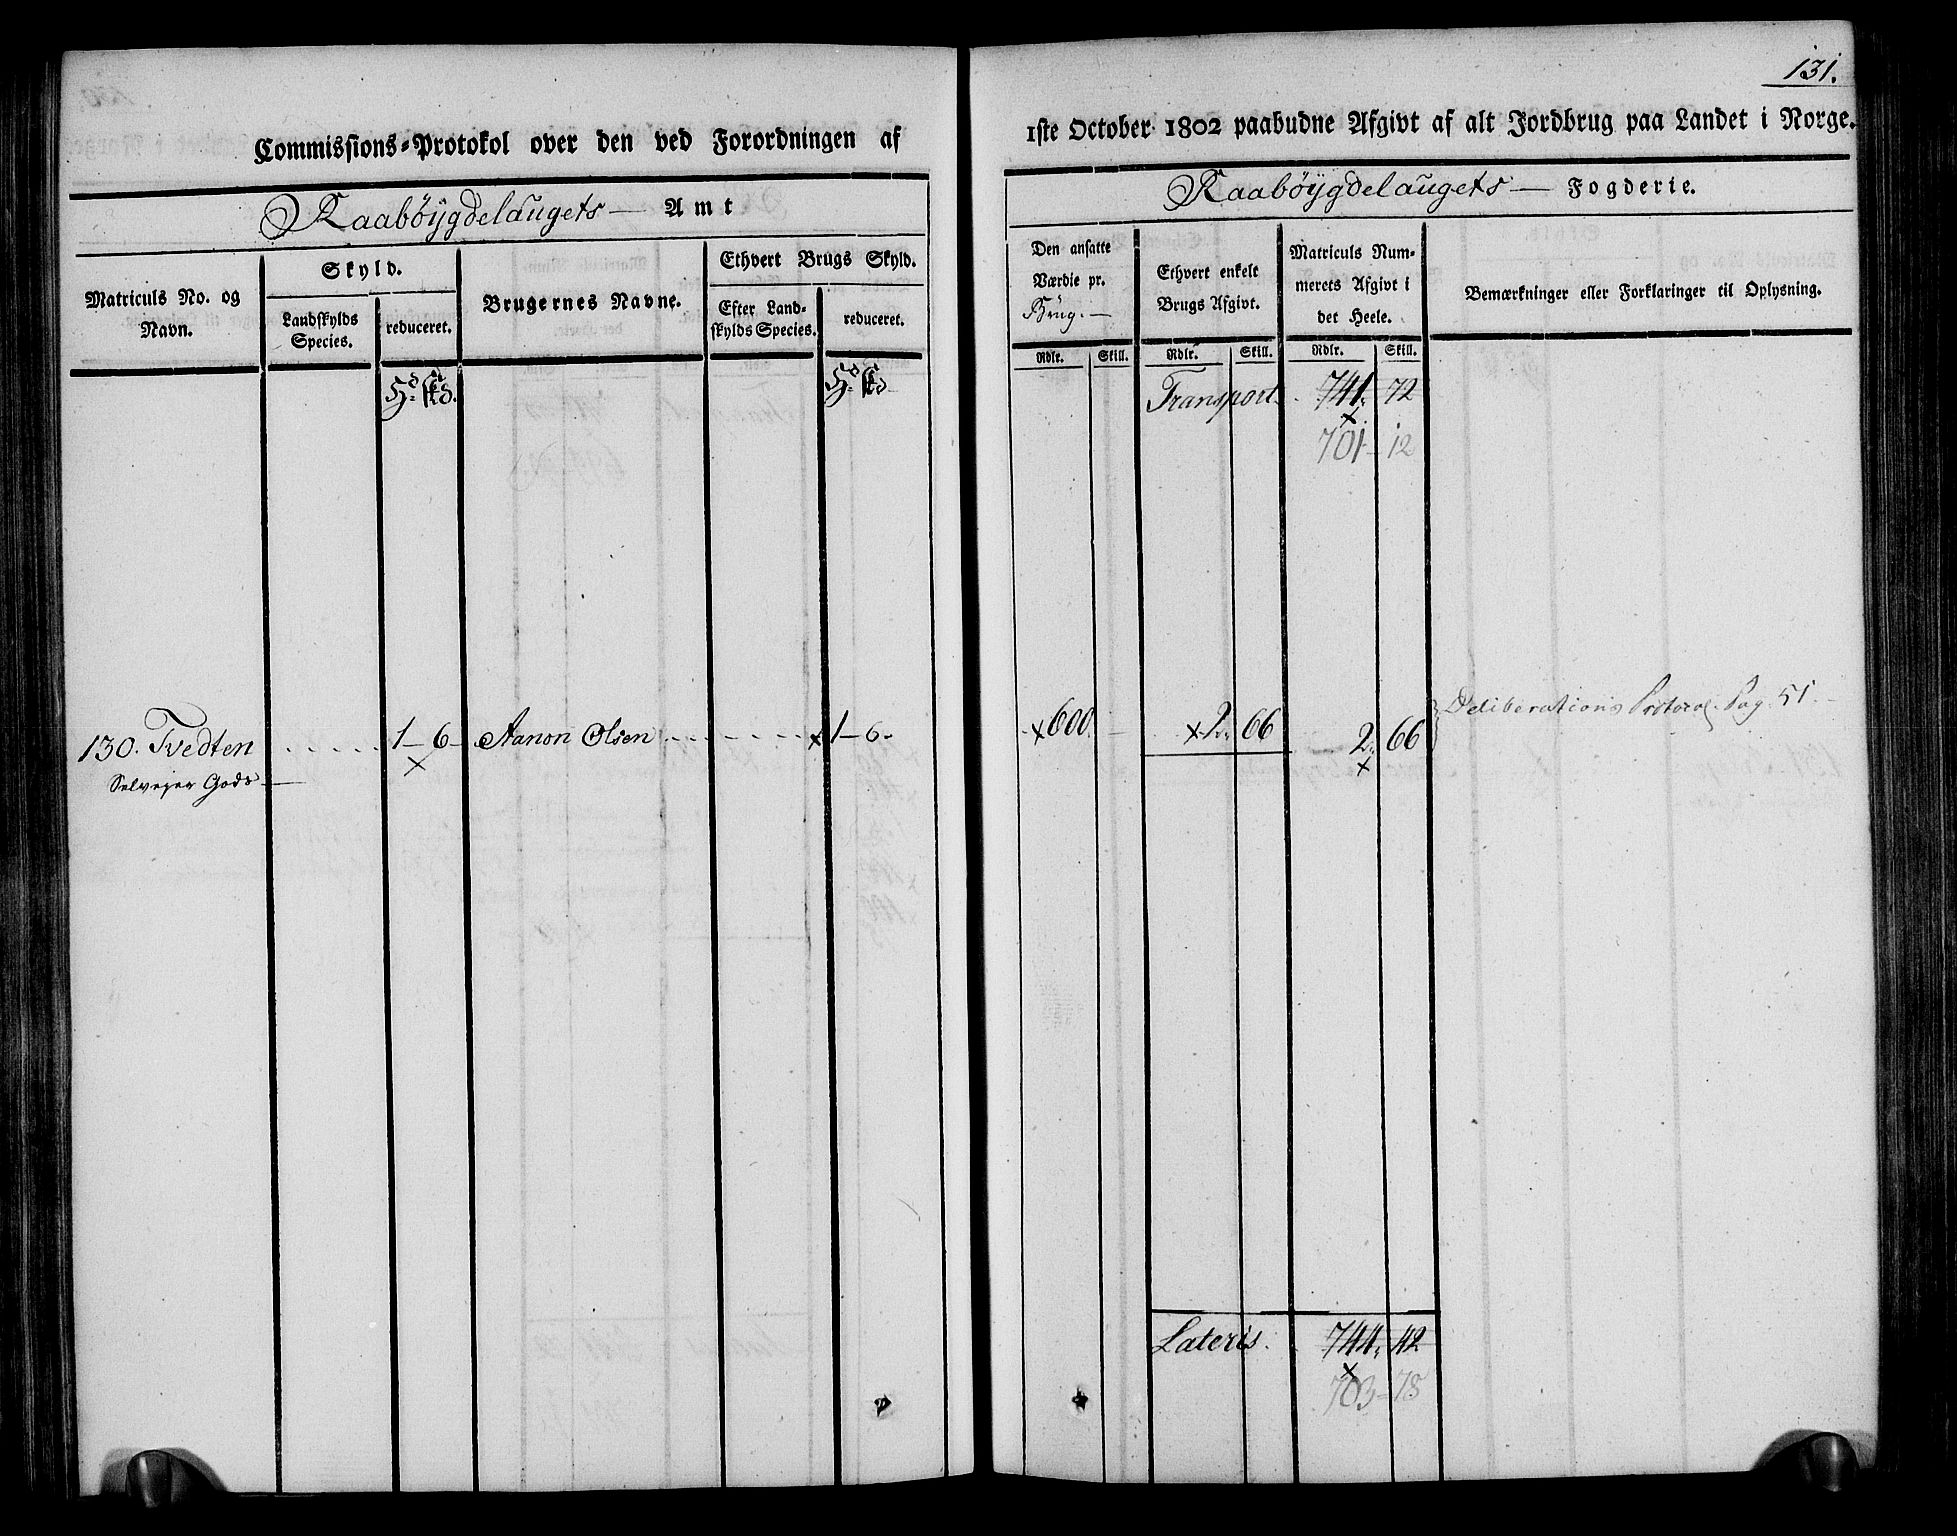 131.
Commissions-Protokol over den ved Forordningen af
1ste October 1802 paabudne Afgivt af alt Jordbrug paa Landet i Norge.
Raabøygdelaugets — Amt
Raabøygdelaugets — Fogderie.
Matriculs No. og Navn.
Skyld.
Landskylds Species.
reduceret.
Brugernes Navne.
Ethvert Brugs Skyld.
Efter Landskylds Species.
reduceret.
Den ansatte Værdie pr. Brug. —
Ethvert enkelt Brugs Afgivt.
Matriculs Nummerets Afgivt i det Heele.
Bemærkninger eller Forklaringer til Oplysning.
Rdlr. Skill. Rdlr. Skill. Rdlr. Skill.
Hd. Skd. Hd. Skd.
Transport. 741. 72
701 - 12
130. Tvedten 1 - 6 - Aanon Olsen × 1 - 6. × 600. × 2. 66 2. 66 Deliberations Protocol. Pag. 51.
× ×
Selvejer Gods —
Lateris. 744. 42
703 - 78